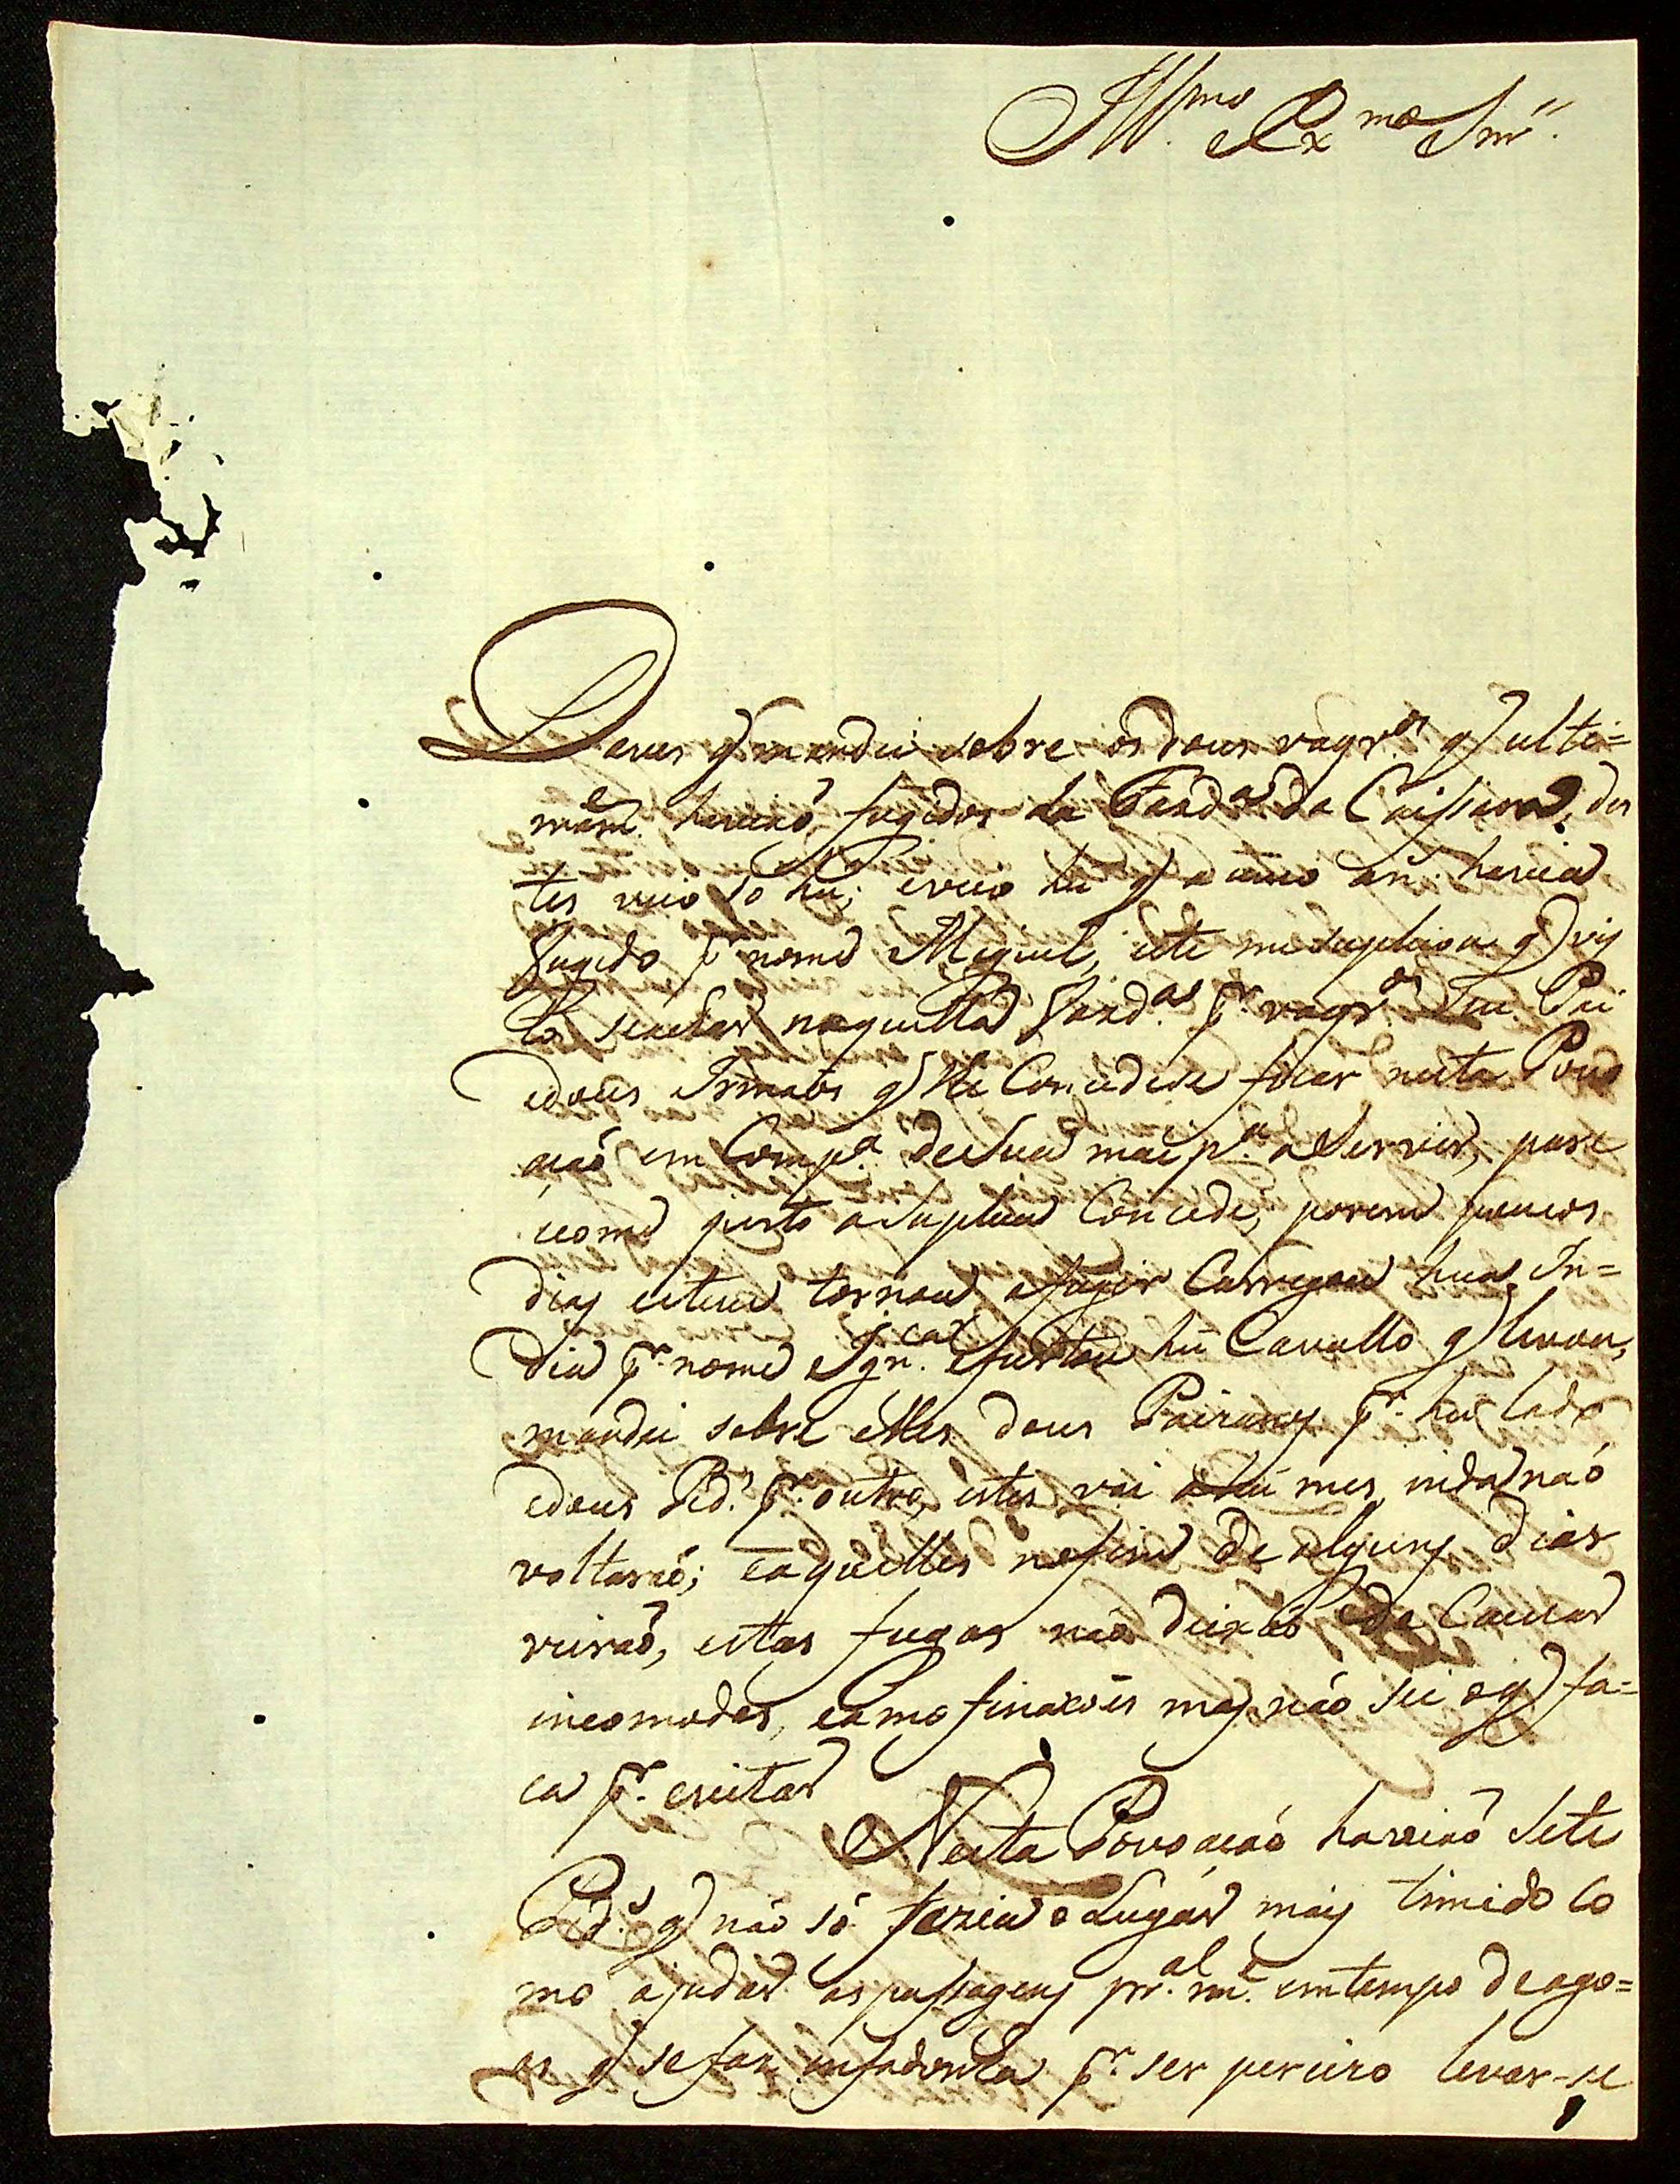 Ill.mo Ex.mo Snr.
Dous q mandei sobre os dous vaqr.os q ulti=
mam.e haviaõ fugidos da Fazd.a da Caissara, des
tes veio só hu; e veio hu q a anno havia
fugido p.r nome Miguel, este me suplicou q vis
to se achar naquellas Fazd.as p.r vaqr.os seu Pai
e dous Irmaõs q lhe Concedese ficar nesta Povo
acaõ em Comp.a de sua mai p.a a Servir, pare
ceome justo a Suplica Concedi, porem poucos
dias esteve tornou a fugir Carregou hua In=
dia p.r nome Ign.cia e furtou hú Cavallo q levou,
mandei sobre elles dous Pairanos p.r hu lado
e dous Ped.s p.r outro, estes vai a hú mes inda naó
voltaraó; e aquelles no fim de alguns dias
viraõ, estas fugas naõ deixaõ de Cauzar
incomodos, e amofinacois mas náo sei o q fa=
ca p.r evitar
Nesta Povoacaó haviaõ Sete
Ped.s q náo só fazia o Lugar mais timido Co
mo ajudar as passagens pr.al m.e em tempo de agoas
q se faz enfadonha p.r ser perciso levar-se